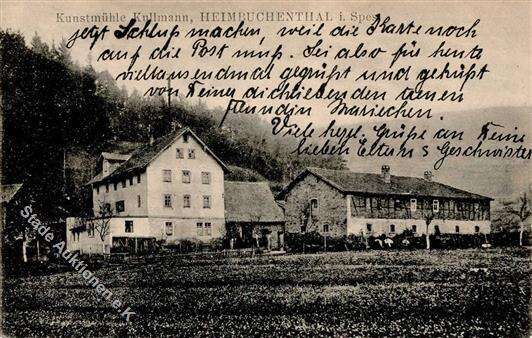 Kunstmühle Kullmann, HEIMBUCHENTHAL i. Spes
jetzt Schluß machen, weil die Karte noch
auf die Post muß. Sei also für heute
vieltausendmal gegrüßt und geküßt
von Deiner dichliebenden treuen
Freundin Mariechen.
Viele herzl. Grüße an Deine
lieben Eltern & Geschwister
Städte
Auktionen e.K